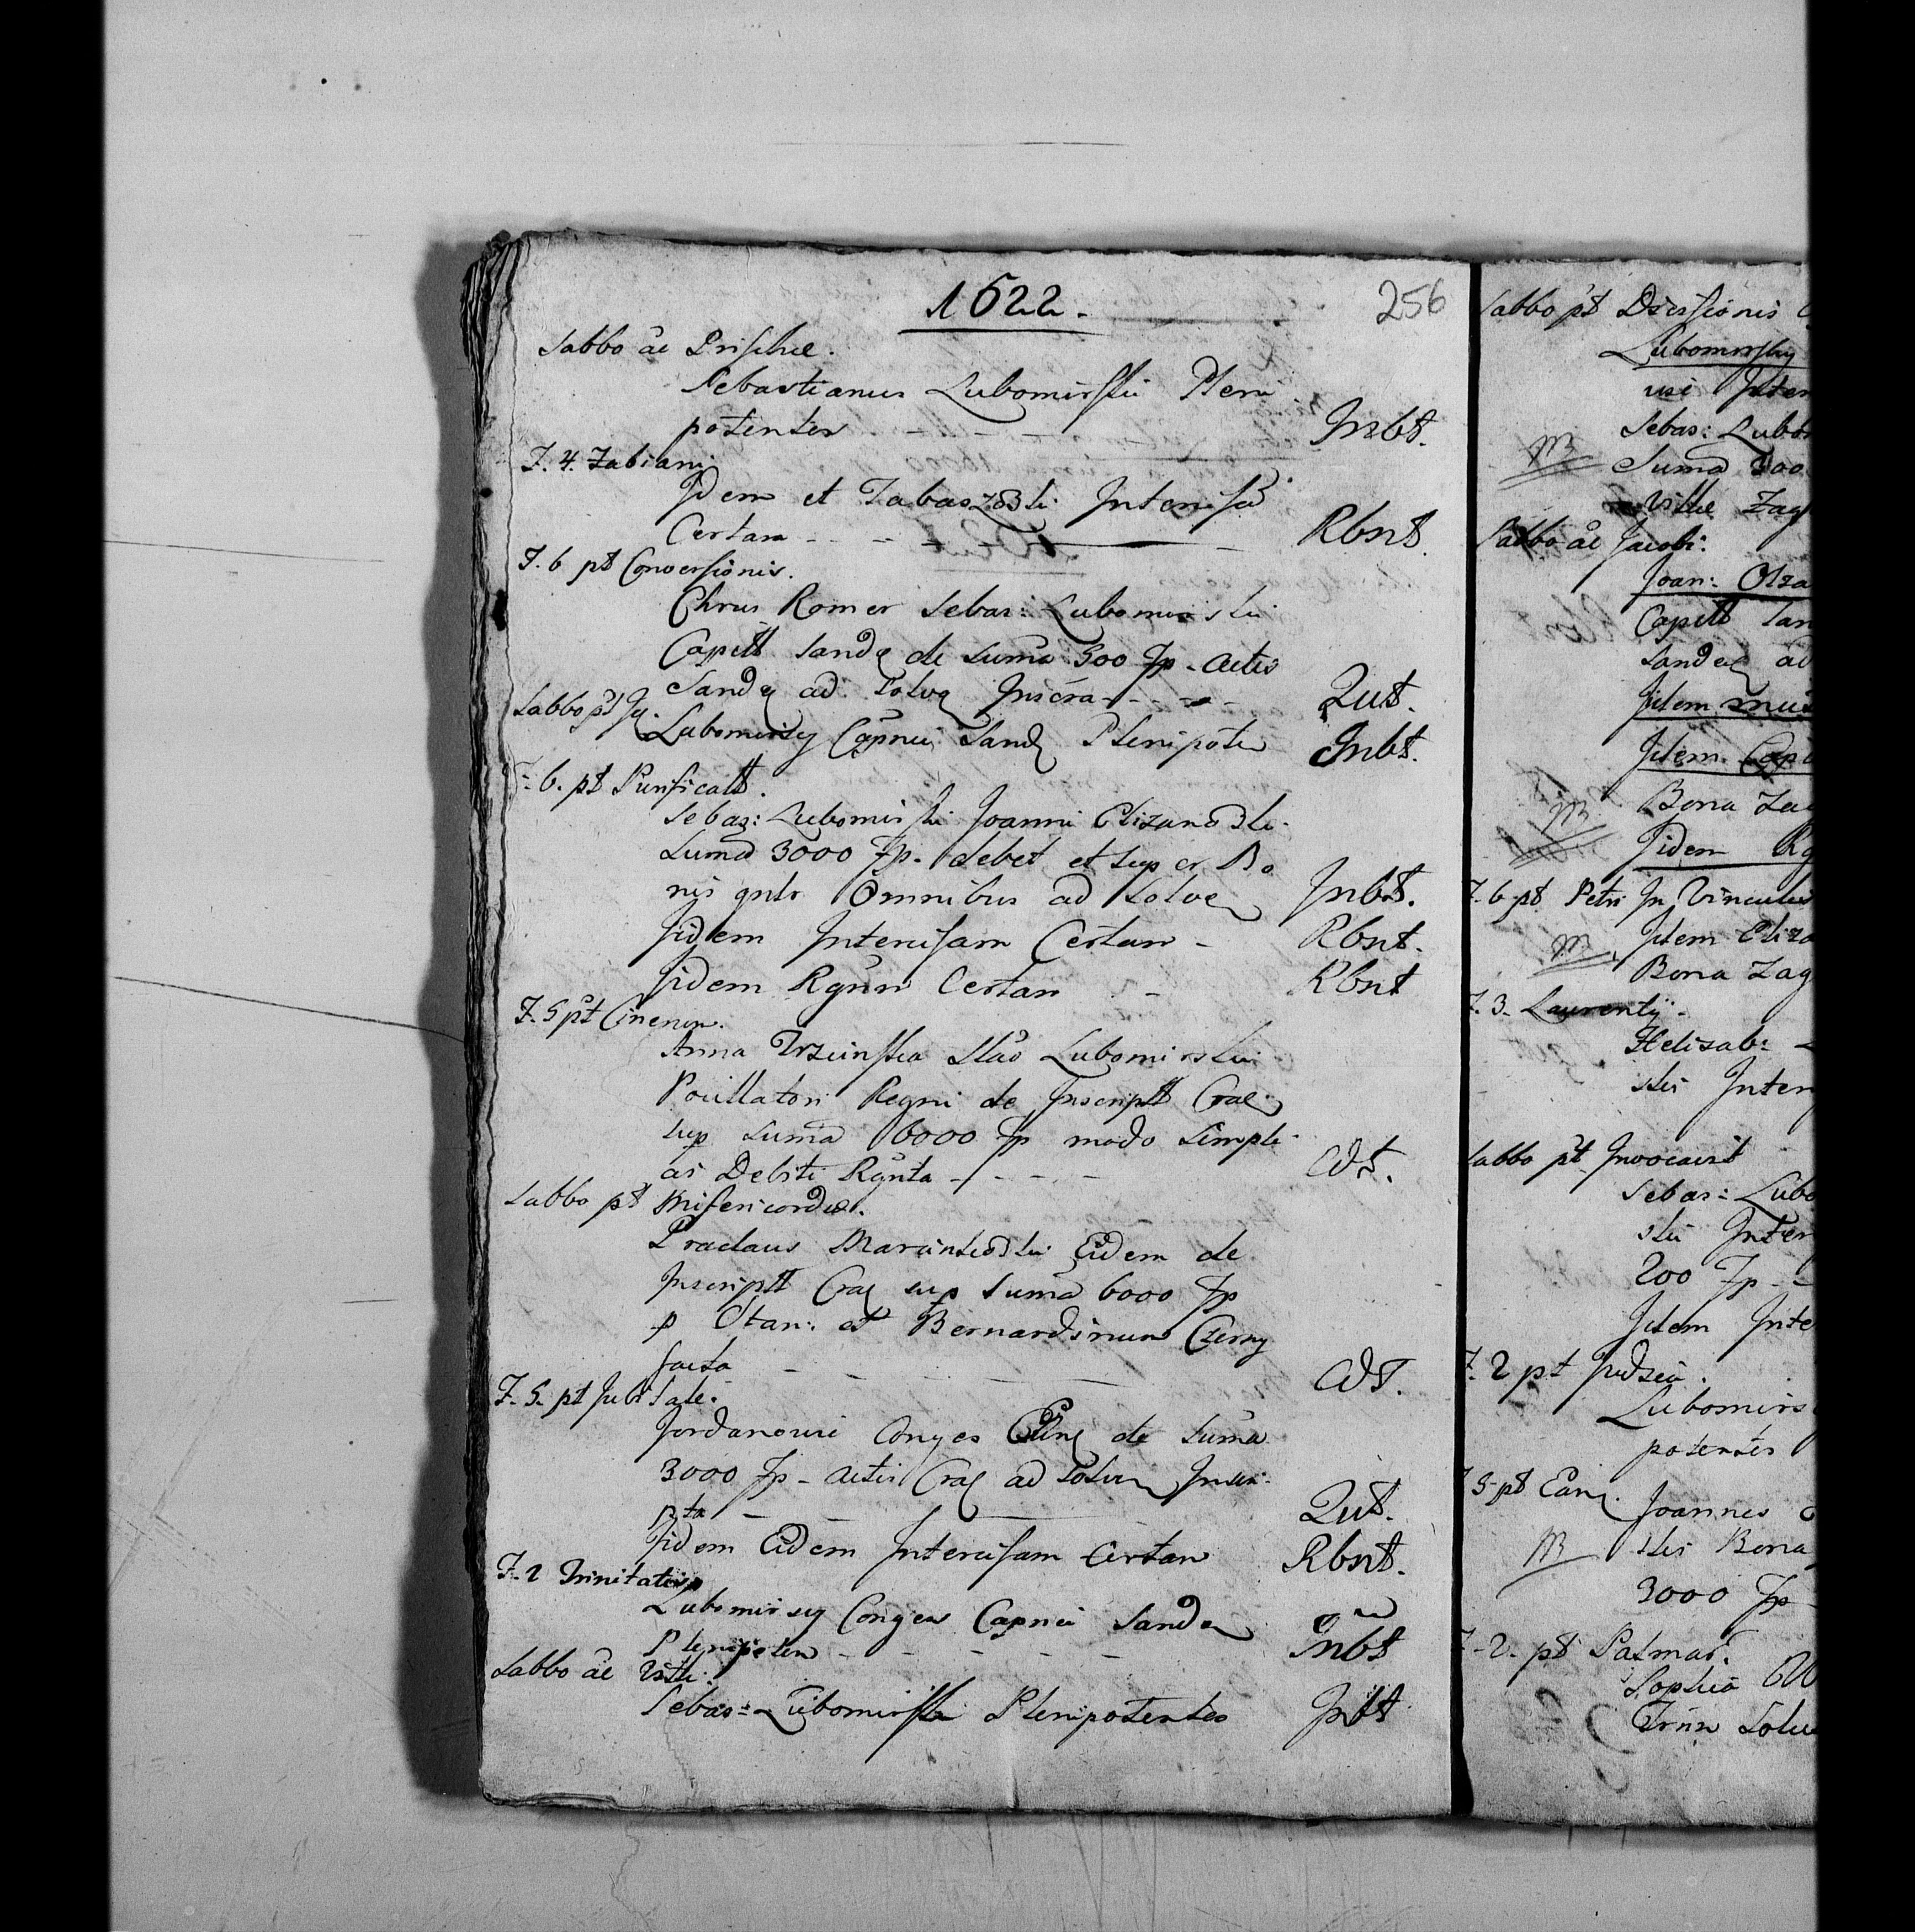 1622.
256
Sabbo ae Priscae.
Sebastianus Lubomirski Pleni
potentes - - - Inbt.
F. 4. Fabiani
Idem et Tabaszoski Intercisã
Certam - - - Rbnt.
F. 6 pt Conversionis.
Chrus Romer Sebas: Lubomirski
Capitt Sandę de Suma 500 Fp. Actis
Sandę ad Solvę Inscra - - - Qut.
Sabbo pt Lubomirsky Capnei Sandę Plenipote Inbt.
F. 6. pt Purificatt.
Sebas: Lubomirski Joanni Elizanoski
Suma 3000 Fp. debet et sup er Bo
nis gnlr Omnibus ad Solve Inbt.
Iidem Intercisam Certam - Rbnt.
Iidem Rgnn Certam - Rbnt
F. 5 pt Cinerum.
Anna Trzcinska Stão Lubomirski
Pocillatori Regni de Inscriptt Crac
sup Suma 6000 Fp modo Simpli
cis Debiti Rgnta - - - Cdt.
Sabbo pt Misericordiae.
Praclaus Marcinkoski Eidem de
Inscriptt Crac sup Suma 6000 Fp
p Stan: et Bernardinum Czerny
facta - - - Cdt.
F. 5. pt Jubilate.
Jordanowie Conges de Suma
3000 Fp - Actis Crac ad Solven Inscri
pta - - - Qut.
Iidem Eidem Intercisam Certam Rbnt.
F. 2 Trinitatis
Lubomirscy Conges Capnei Sande
Plenipoten - - - - - Inbt
Sabbo ae Viti.
Sebas: Lubomirski Plenipotentes Inbt
Sabbo pt Divisionis
Lubomirsky
Sebas: Lubom
Suma 300
Villae Zag
Sabbo ae Jacobi.
Joan: Olza
Capitt San
Sandę ad
Item
Item Capi
Bona Zag
Iidem Rg
F. 6 pt Petri In Vinculis
Item Eliza
Bona Zag
F. 3. Laurentij.
Helisab:
ski Inter
Sabbo pt Invocavit
Sebas: Lubo
ski Inter
200 Fp -
Item Inte
F. 2 pt Judica.
Lubomirs
potentes
F. 5 pt Joannes
ski Bona
3000 Fp
F. 2. pt Palmar:
Sophia
Solu